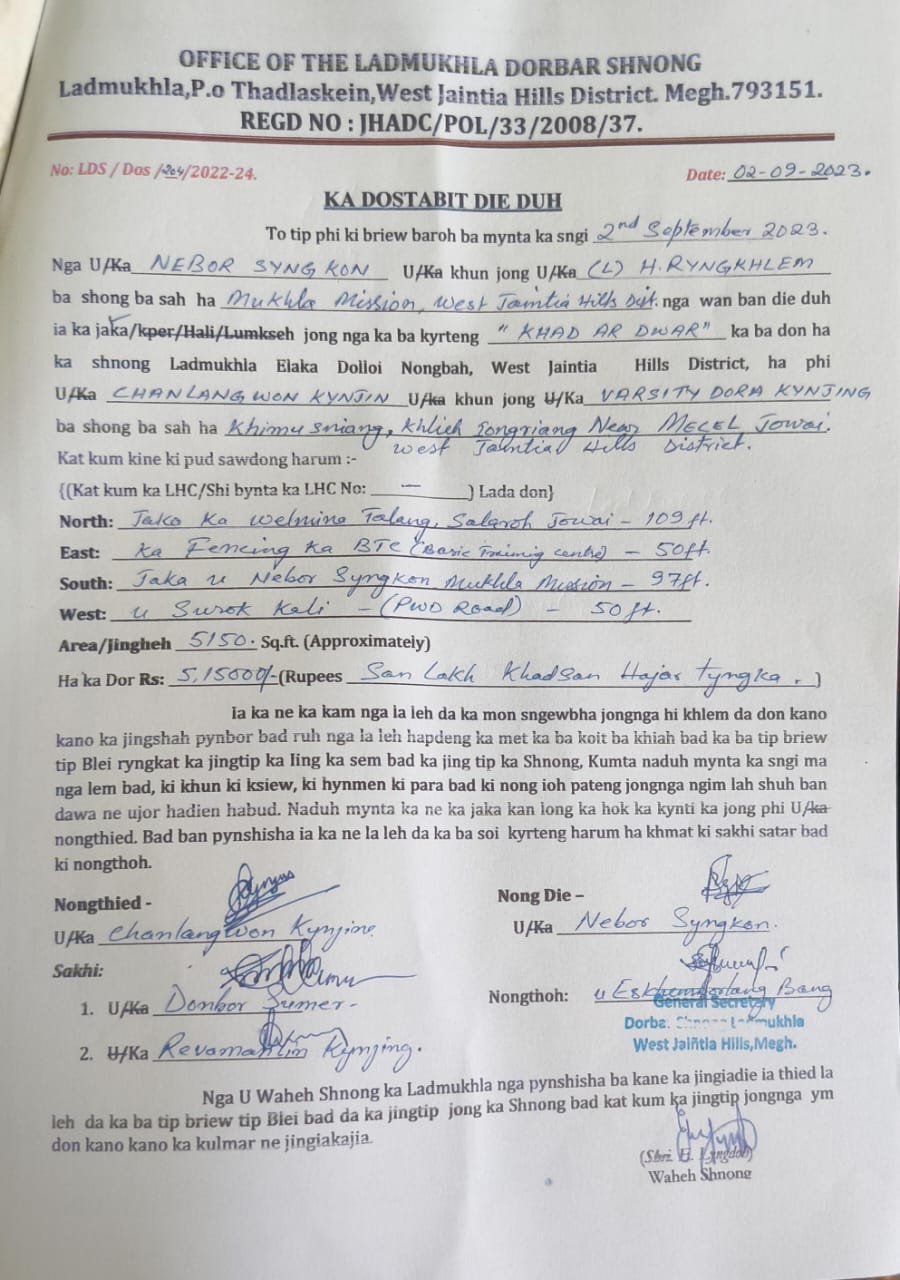 OFFICE OF THE LADMUKHLA DORBAR SHNONG
Ladmukhla,P.o Thadlaskein,West Jaintia Hills District. Megh.793151.
REGD NO : JHADC/POL/33/2008/37.
No: LDS / Das /204/2022-24. Date: 02-09-2023.
KA DOSTABIT DIE DUH
To tip phi ki briew baroh ba mynta ka sngi 2nd September 2023.
Nga U/Ka NEBOR SYNGKON U/Ka khun jong U/Ka (L) H.RYNGKHLEM
ba shong ba sah ha Mukhla Mission, West Jaintia Hills Dist. nga wan ban die duh
ia ka jaka/kper/Hali/Lumkseh jong nga ka ba kyrteng "KHAD AR DWAR" ka ba don ha
ka shnong Ladmukhla Elaka Dolloi Nongbah, West Jaintia Hills District, ha phi
U/Ka CHANLANGWON KYNJIN U/ka khun jong U/Ka VARSITY DORA KYNJING
ba shong ba sah ha Khimusniang, Khlieh Tongriang Near MECEL Jowai.
West Jaintia Hills District.
Kat kum kine ki pud sawdong harum :-
{(Kat kum ka LHC/Shi bynta ka LHC No: — ) Lada don}
North: Jaka Ka Welmina Talang, Salaroh Jowai - 109 ft.
East: Ka Fencing Ka BTC (Basic Training centre) - 50ft.
South: Jaka u Nebor Syngkon Mukhla Mission - 97ft.
West: u Surok Kali - (PWD Road) - 50 ft.
Area/Jingheh 5150. Sq.ft. (Approximately)
Ha ka Dor Rs: 5,15000/- (Rupees San Lakh Khadsan Hajar Tyngka. )
Ia ka ne ka kam nga la leh da ka mon sngewbha jongnga hi khlem da don kano
kano ka jingshah pynbor bad ruh nga la leh hapdeng ka met ka ba koit ba khiah bad ka ba tip briew
tip Blei ryngkat ka jingtip ka Iing ka sem bad ka jing tip ka Shnong, Kumta naduh mynta ka sngi ma
nga lem bad, ki khun ki ksiew, ki hynmen ki para bad ki nong ioh pateng jongnga ngim lah shuh ban
dawa ne ujor hadien habud. Naduh mynta ka ne ka jaka kan long ka hok ka kynti ka jong phi U/ka
nongthied. Bad ban pynshisha ia ka ne la leh da ka ba soi kyrteng harum ha khmat ki sakhi satar bad
ki nongthoh.
Nongthied - Nong Die –
U/Ka Chanlangwon Kynjing U/Ka Nebor Syngkon.
Sakhi:
1. U/Ka Donbor Sumer- Nongthoh: u Bang
General Secretary
Dorbar Shnong Ladmukhla
West Jaiñtia Hills,Megh.
2. U/Ka Kynjing.
Nga U Waheh Shnong ka Ladmukhla nga pynshisha ba kane ka jingiadie ia thied la
leh da ka ba tip briew tip Blei bad da ka jingtip jong ka Shnong bad kat kum ka jingtip jongnga ym
don kano kano ka kulmar ne jingiakajia.
(Shri. E. Lyngdoh)
Waheh Shnong